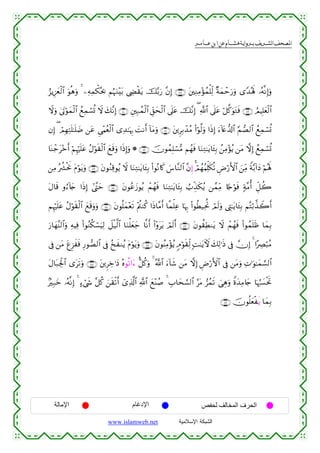 المصحف الشريف برواية هشام عن ابن عامر
وَإِنَّهُۥ لَهُدًى وَرَحْمَةٌ لِّلْمُؤْمِنِينَ إِنَّ رَبَّكَ يَقْضِى بَيْنَهُم بِحُكْمِهِۦ ۚ وَهُوَ ٱلْعَزِيزُ
ٱلْعَلِيمُ فَتَوَكَّلْ عَلَى ٱللَّهِ ۖ إِنَّكَ عَلَى ٱلْحَقِّ ٱلْمُبِينِ إِنَّكَ لَا تُسْمِعُ ٱلْمَوْتَىٰ وَلَا
تُسْمِعُ ٱلصُّمَّ ٱلدُّعَآءَ إِذَا وَلَّوْا۟ مُدْبِرِينَ وَمَآ أَنتَ بِهَٰدِى ٱلْعُمْىِ عَن ضَلَٰلَتِهِمْ ۖ إِن
تُسْمِعُ إِلَّا مَن يُؤْمِنُ بِـَٔايَٰتِنَا فَهُم مُّسْلِمُونَ ۞ وَإِذَا وَقَعَ ٱلْقَوْلُ عَلَيْهِمْ أَخْرَجْنَا
لَهُمْ دَآبَّةً مِّنَ ٱلْأَرْضِ تُكَلِّمُهُمْ إِنَّ ٱلنَّاسَ كَانُوا۟ بِـَٔايَٰتِنَا لَا يُوقِنُونَ وَيَوْمَ نَحْشُرُ مِن
كُلِّ أُمَّةٍ فَوْجًا مِّمَّن يُكَذِّبُ بِـَٔايَٰتِنَا فَهُمْ يُوزَعُونَ حَتَّىٰٓ إِذَا جَآءُو قَالَ
أَكَذَّبْتُم بِـَٔايَٰتِى وَلَمْ تُحِيطُوا۟ بِهَا عِلْمًا أَمَّاذَا كُنتُمْ تَعْمَلُونَ وَوَقَعَ ٱلْقَوْلُ عَلَيْهِم
بِمَا ظَلَمُوا۟ فَهُمْ لَا يَنطِقُونَ أَلَمْ يَرَوْا۟ أَنَّا جَعَلْنَا ٱلَّيْلَ لِيَسْكُنُوا۟ فِيهِ وَٱلنَّهَارَ
مُبْصِرًا ۚ إِنَّ فِى ذَٰلِكَ لَءَايَٰتٍ لِّقَوْمٍ يُؤْمِنُونَ وَيَوْمَ يُنفَخُ فِى ٱلصُّورِ فَفَزِعَ مَن فِى
ٱلسَّمَٰوَٰتِ وَمَن فِى ٱلْأَرْضِ إِلَّا مَن شَآءَ ٱللَّهُ ۚ وَكُلٌّ ءَاتُوهُ دَٰخِرِينَ وَتَرَى ٱلْجِبَالَ
تَحْسَبُهَا جَامِدَةً وَهِىَ تَمُرُّ مَرَّ ٱلسَّحَابِ ۚ صُنْعَ ٱللَّهِ ٱلَّذِىٓ أَتْقَنَ كُلَّ شَىْءٍ ۚ إِنَّهُۥ خَبِيرٌۢ
بِمَا يَفْعَلُونَ
الحرف المخالف لحفص الإدغام الإمالة
الشبكة الإسلامية www.islamweb.net